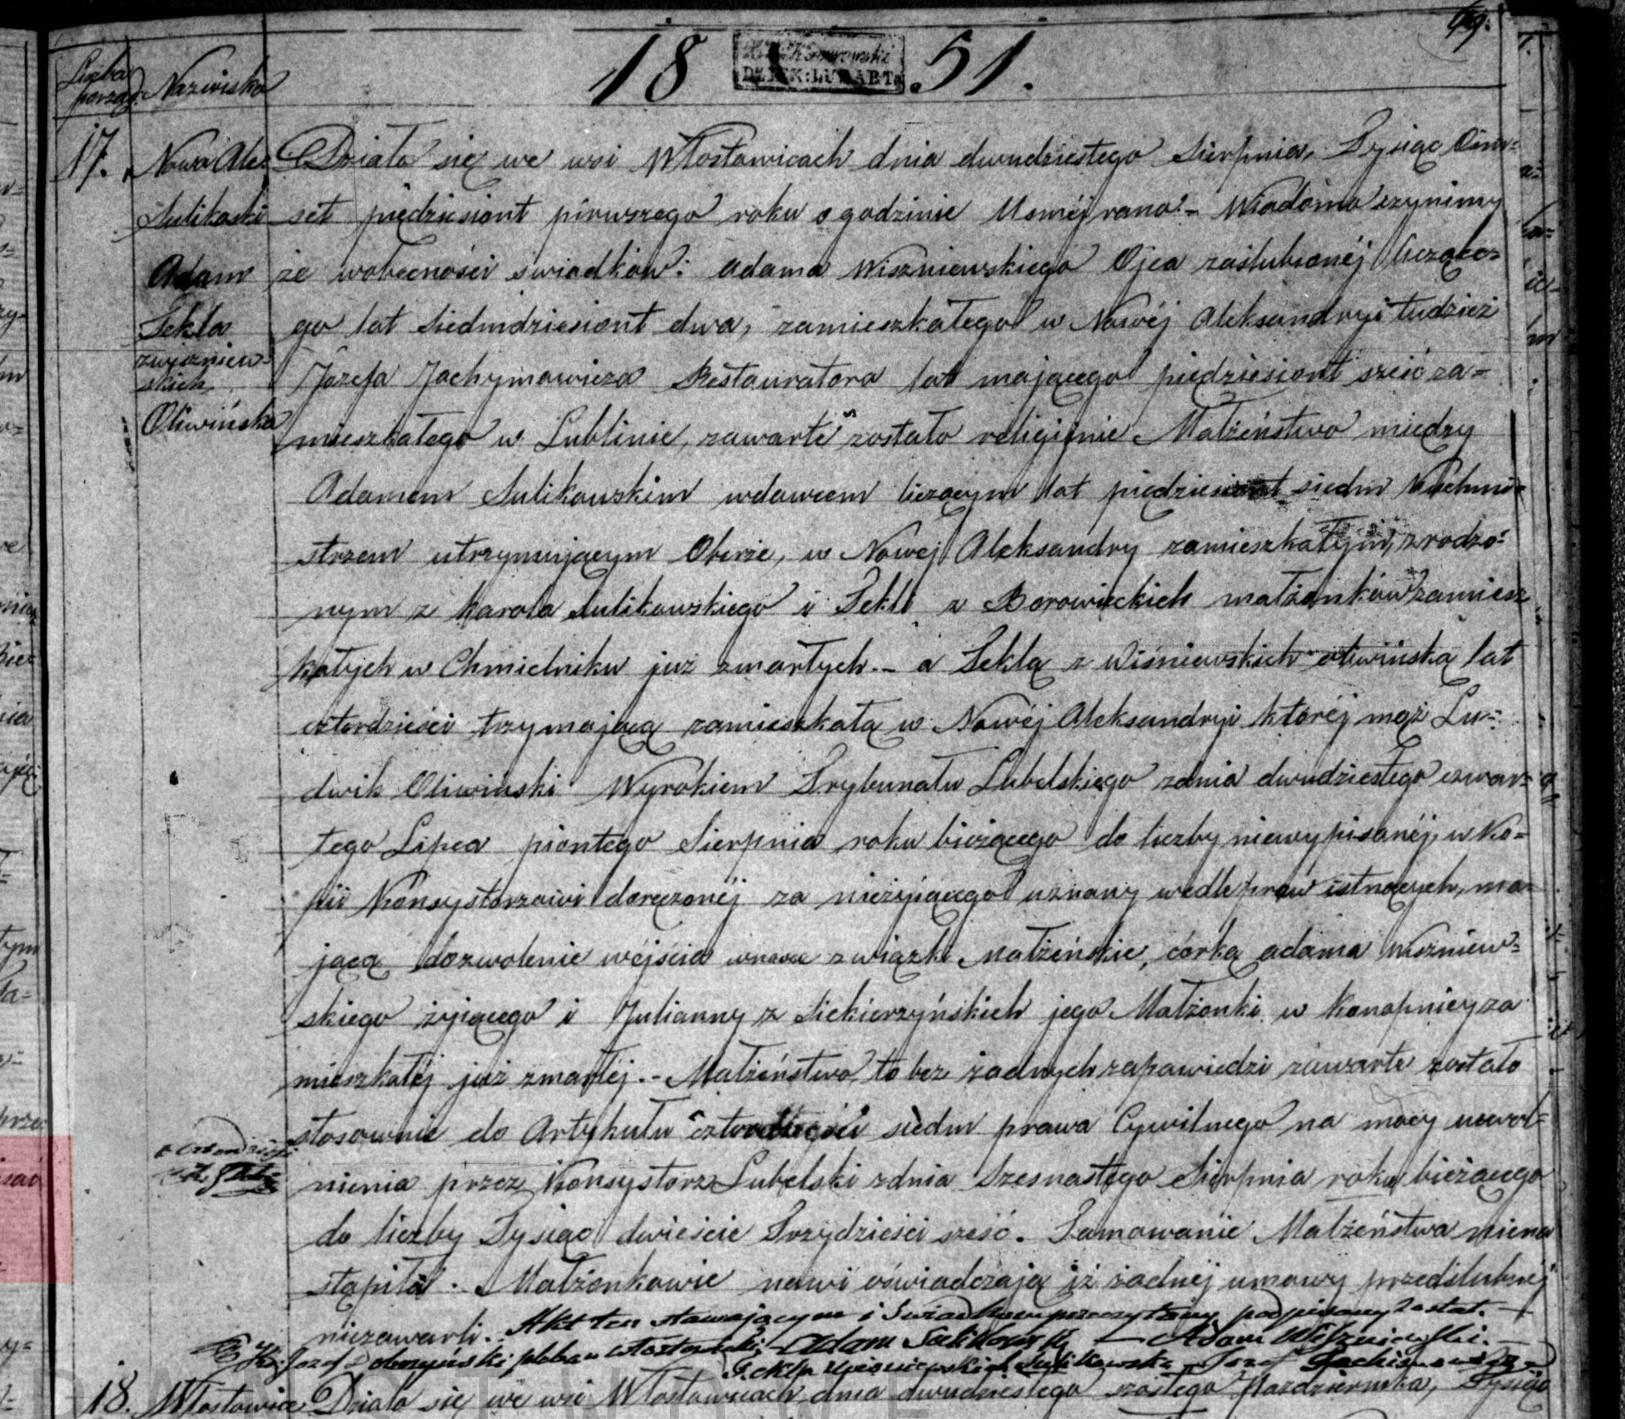 69.
18 51.
Liczba porząd. Nazwisko
17. Nowa Alex. Sulikoski Adam Tekla z Wiszniewskich Oliwińska
Działo się we wsi Włostowicach dnia dwudziestego Sierpnia, Tysiąc Ośm-
set piędziesiont pirwszego roku o godzinie Usméj rano. – Wiadomo czynimy
że wobecności swiadków: Adama Wiszniewskiego Ojca zaślubionéj liczące-
go lat siedmdziesiont dwa, zamieszkałego w Nowéj Aleksandryi tudzież
Józefa Jachymowicza Restauratora lat mającego piędziesiont sześć za-
mieszkałego w Lublinie, zawarte zostało religijnie Małżeństwo miedzy
Adamem Sulikowskim wdowcem liczącym lat piędziesiont siedm Kuchmi-
strzem utrzymującym Oberże, w Nowej Aleksandry zamieszkałym, zrodzo-
nym z Karola Sulikowskiego i Tekli z Borowieckich małżonków zamiesz
kałych w Chmielniku już zmarłych. – a Teklą z Wiśniewskich Oliwińską lat
czterdzieści trzy mającą zamieszkałą w Nowéj Aleksandryi któréj mąż Lu-
dwik Oliwiński Wyrokiem Trybunału Lubelskiego z dnia dwudziestego czwar-
tego Lipca piontego Sierpnia roku bieżącego do liczby niewypisanéj, w Ko-
pii Konsystorzowi doręczonéj za nieżyjącego uznany wedle praw istnących, ma-
jącą dozwolenie wejścia wnowe związki Małżeńskie, córką Adama Wiszniew-
skiego żyjącego i Julianny z Siekierzyńskich jego Małżonki w Konopnicy za
mieszkałéj już zmarłéj. – Małżeństwo to bez żadnych zapowiedzi zawarte zostało
stosownie do Artykułu czterdzieści siedm prawa Cywilnego na mocy uwol-
nienia przez Konsystorz Lubelski z dnia Szesnastego Sierpnia roku bieżącego
do liczby Tysiąc dwieście Trzydzieści sześć. Tamowanie Małżeństwa niena
stąpiło. Małżonkowie nowi oświadczają iż żadnéj umowy przedślubnéj
niezawarli. Akt ten stawającym i Swiadkom przeczytany podpisany został. –
Adam Sulikowski – Adam Wiszniewski. –
Tekla z Wiśniewskich Sulikowska
18. Włostowice Działo się we wsi Włostowicach dnia dwudziestego szóstego Października, Tysiąc